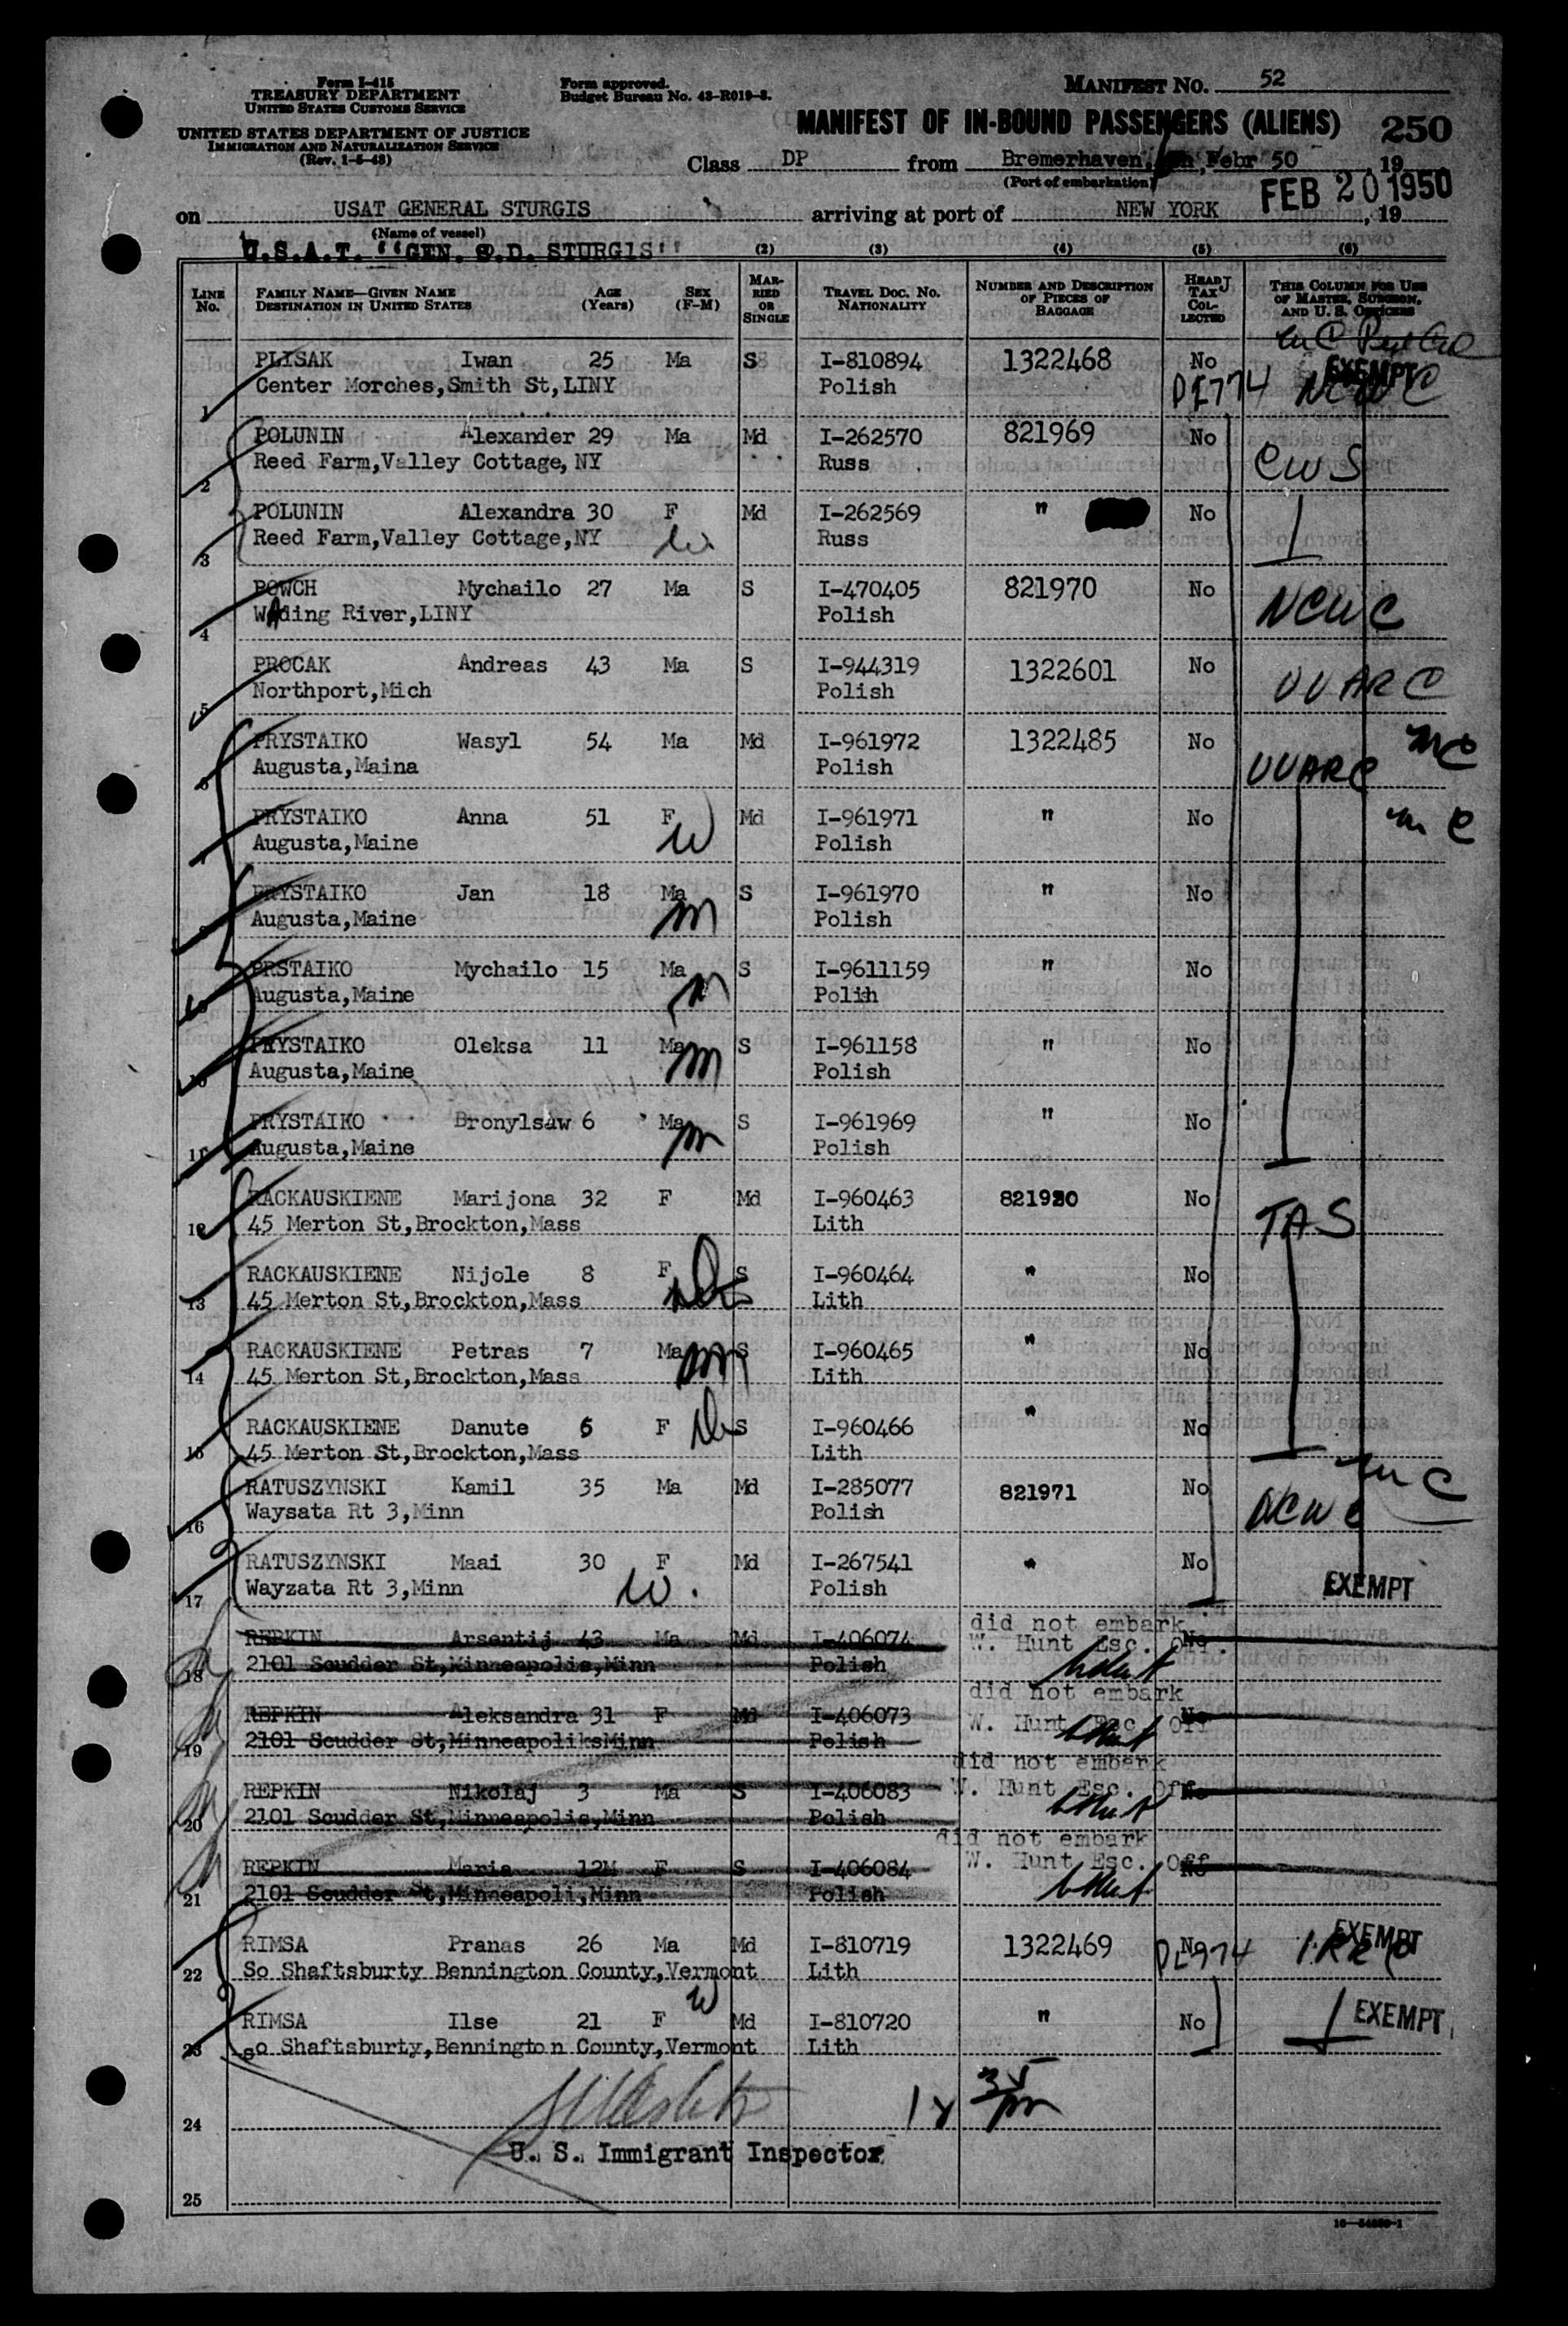 Form I-415
TREASURY DEPARTMENT
UNITED STATES CUSTOMS SERVICE
UNITED STATES DEPARTMENT OF JUSTICE
IMMIGRATION AND NATURALIZATION SERVICE
(Rev. 1-5-43)
Form approved.
Budget Bureau No. 43-R019-3.
MANIFEST NO. 52
MANIFEST OF IN-BOUND PASSENGERS (ALIENS) 250
Class DP from Bremerhaven, Febr 50, 19
(Port of embarkation)
FEB 20 1950
on USAT GENERAL STURGIS arriving at port of NEW YORK, 19
(Name of vessel)
U.S.A.T. "GEN. S.D. STURGIS"
(2) (3) (4) (5) (6)
LINE No. FAMILY NAME—GIVEN NAME DESTINATION IN UNITED STATES AGE (Years) SEX (F-M) MARRIED OR SINGLE TRAVEL DOC. NO. NATIONALITY NUMBER AND DESCRIPTION OF PIECES OF BAGGAGE HEAD TAX COLLECTED THIS COLUMN FOR USE OF MASTER, SURGEON, AND U. S. OFFICERS
PLISAK Iwan 25 Ma S I-810894 1322468 No EXEMPT
1 Center Morches,Smith St,LINY Polish NCWC
POLUNIN Alexander 29 Ma Md I-262570 821969 No
2 Reed Farm,Valley Cottage,NY Russ CWS
POLUNIN Alexandra 30 F Md I-262569 " No
3 Reed Farm,Valley Cottage,NY W Russ
POWCH Mychailo 27 Ma S I-470405 821970 No
4 Wading River,LINY Polish NCWC
PROCAK Andreas 43 Ma S I-944319 1322601 No
5 Northport,Mich Polish UUARC
PRYSTAIKO Wasyl 54 Ma Md I-961972 1322485 No MC
6 Augusta,Maina Polish UUARC
PRYSTAIKO Anna 51 F Md I-961971 " No MC
7 Augusta,Maine W Polish
PRYSTAIKO Jan 18 Ma S I-961970 " No
8 Augusta,Maine m Polish
PRSTAIKO Mychailo 15 Ma S I-9611159 " No
9 Augusta,Maine m Polih
PRYSTAIKO Oleksa 11 Ma S I-961158 " No
10 Augusta,Maine m Polish
PRYSTAIKO Bronylsaw 6 Ma S I-961969 " No
11 Augusta,Maine m Polish
RACKAUSKIENE Marijona 32 F Md I-960463 821920 No
12 45 Merton St,Brockton,Mass Lith TAS
RACKAUSKIENE Nijole 8 F S I-960464 " No
13 45 Merton St,Brockton,Mass Lith
RACKAUSKIENE Petras 7 Ma S I-960465 " No
14 45 Merton St,Brockton,Mass Lith
RACKAUSKIENE Danute 6 F S I-960466 " No
15 45 Merton St,Brockton,Mass Lith
RATUSZYNSKI Kamil 35 Ma Md I-285077 821971 No MC
16 Waysata Rt 3,Minn Polish NCWC
RATUSZYNSKI Maai 30 F Md I-267541 " No
17 Wayzata Rt 3,Minn W. Polish EXEMPT
did not embark
REPKIN Arsentij 43 Ma Md I-406074 W. Hunt Esc. Off. No
18 2101 Scudder St,Minneapolis,Minn Polish WHunt
did not embark
REPKIN Aleksandra 31 F Md I-406073 W. Hunt Esc. Off No
19 2101 Scudder St,MinneapoliksMinn Polish WHunt
did not embark
REPKIN Nikolaj 3 Ma S I-406083 W. Hunt Esc. Off. No
20 2101 Scudder St,Minneapolis,Minn Polish WHunt
did not embark
REPKIN Maria 12M F S I-406084 W. Hunt Esc. Off No
21 2101 Scudder St,Minneapoli,Minn Polish WHunt
RIMSA Pranas 26 Ma Md I-810719 1322469 No EXEMPT
22 So Shaftsburty Bennington County,Vermont Lith
RIMSA Ilse 21 F W Md I-810720 " No EXEMPT
23 so Shaftsburty,Bennington County,Vermont Lith
24
U. S. Immigrant Inspector
25